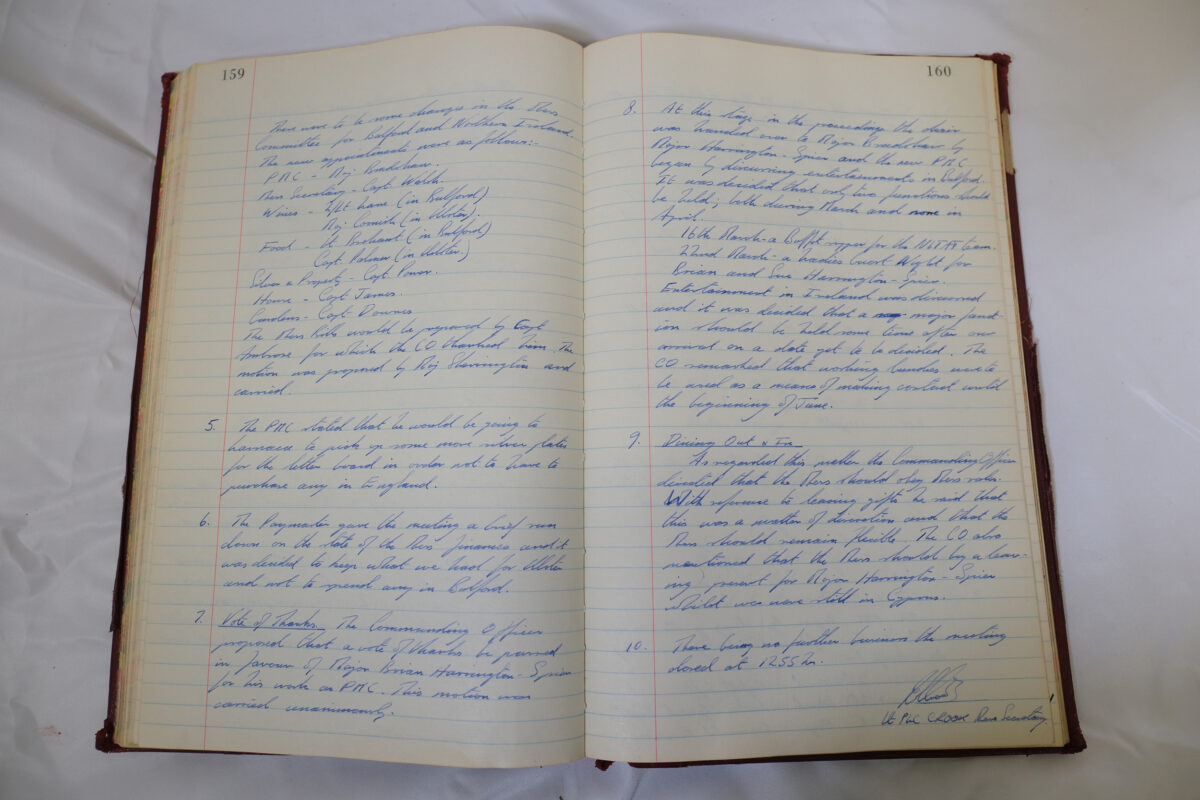 159
There were to be some changes in the Mess
Committee for Bulford and Northern Ireland.
The new appointments were as follows:-
PMC - Maj Bradshaw.
Mess Secretary - Capt Webb.
Wines - 2/Lt Lane (in Bulford)
Maj Cornish (in Ulster).
Food - Lt (in Bulford)
Capt Palmer (in Ulster.)
Silver & Property - Capt
House - Capt James.
Gardens - Capt Downes
The Mess Bills would be prepared by Capt
Ambrose for which the CO thanked him. The
motion was proposed by Maj and
carried.
5. The PMC stated that he would be going to
to pick up some more silver plates
for the letter board in order not to have to
purchase any in England.
6. The Paymaster gave the meeting a brief run
down on the state of the Mess finances and it
was decided to keep what we had for Ulster
and not to spend any in Bulford.
7. Vote of Thanks. The Commanding Officer
proposed that a vote of thanks be passed
in favour of Major Brian Harrington-Spier
for his work as PMC. This motion was
carried unanimously.
160
8. At this stage in the proceedings the chair
was handed over to Major Bradshaw by
Major Harrington-Spier and the new PMC
began by discussing entertainments in Bulford.
It was decided that only two functions should
be held, both during March and none in
April.
16th March - a Buffet supper for the team.
22nd March - a Ladies Guest Night for
Brian and Sue Harrington-Spier.
Entertainment in Ireland was discussed
and it was decided that a major funct-
ion should be held some time after our
arrival on a date yet to be decided. The
CO remarked that working lunches were to
be used as a means of making contact until
the beginning of June.
9. Dining Out & In
As regarded this matter the Commanding Officer
directed that the Mess should obey Mess rules.
With reference to leaving gifts he said that
this was a matter of discretion and that the
Mess should remain flexible. The CO also
mentioned that the Mess should buy a leav-
ing present for Major Harrington-Spier
whilst we were still in Cyprus.
10. There being no further business the meeting
closed at 1255 hr.
Lt Mess Secretary